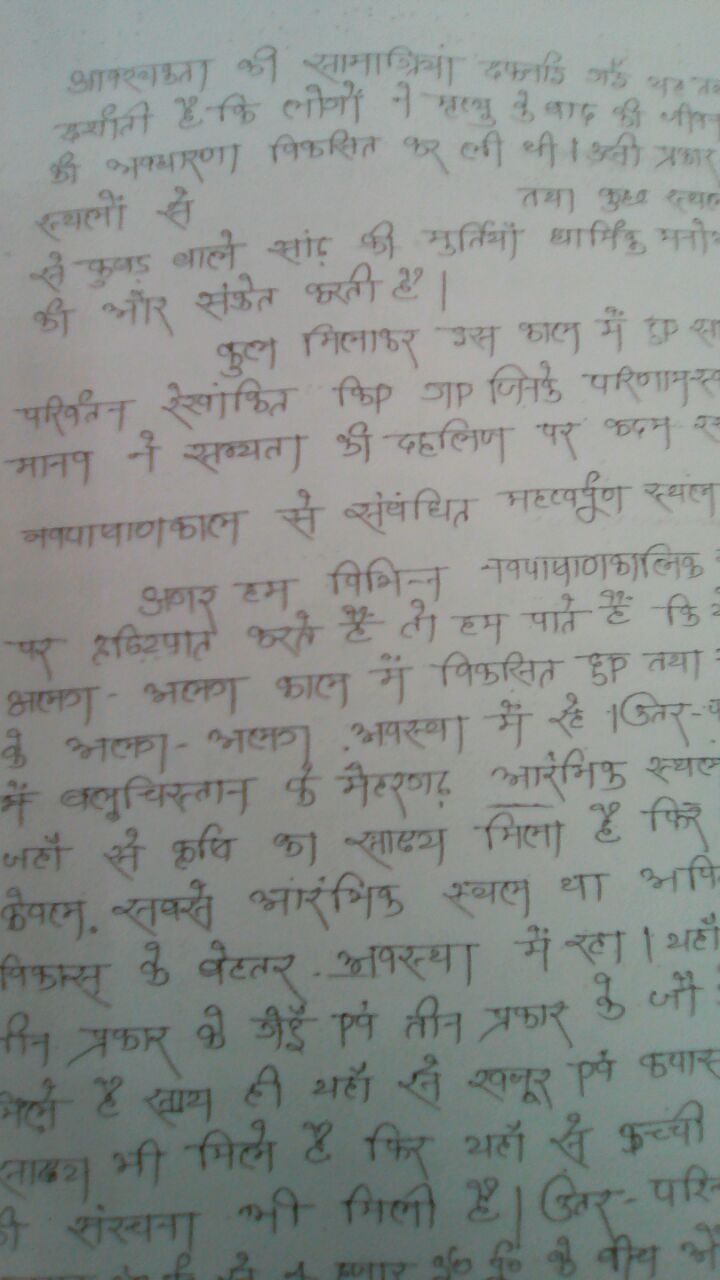 आवश्यकता की सामाग्रियां दफनाई गई यह
दर्शाती है कि लोगों ने मृत्यु के बाद की जीवन
की अवधारणा विकसित कर ली थी। उसी प्रकार
स्थलों से तथा कुछ स्थल
से कुबड़ वाले सांढ़ की मुर्तियाँ धार्मिक
की और संकेत करती है।
कुल मिलाकर इस काल में हुए
परिर्वतन रेखांकित किए गए जिनके परिणाम
मानव ने सभ्यता की दहलिज पर कदम
नवपाषाणकाल से संबंधित महत्वर्पूण स्थल
अगर हम विभिन्न नवपाषाणकालिक
पर दृष्टिपात करते हैं तो हम पाते हैं कि
अलग - अलग काल में विकसित हुए तथा
के अलग - अलग अवस्था में रहे। उतर-
में बलूचिस्तान के मेहरगढ़ आरंभिक स्थल
जहाँ से कृषि का साक्ष्य मिला है फिर
केवल सबसे आरंभिक स्थल था
विकास के बेहतर अवस्था में रहा। यहाँ
तीन प्रकार के गेहूँ एवं तीन प्रकार के जौ
मिले है साथ ही यहाँ से खजूर एवं कपास
साक्ष्य भी मिले है फिर यहाँ से कच्ची
की संरचना भी मिली है। उतर-
हजार ई० पू० के बीच